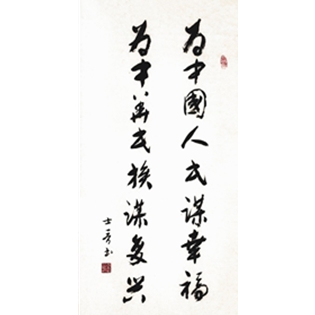 为中國人民谋幸福
为中华民族谋复兴
士 书